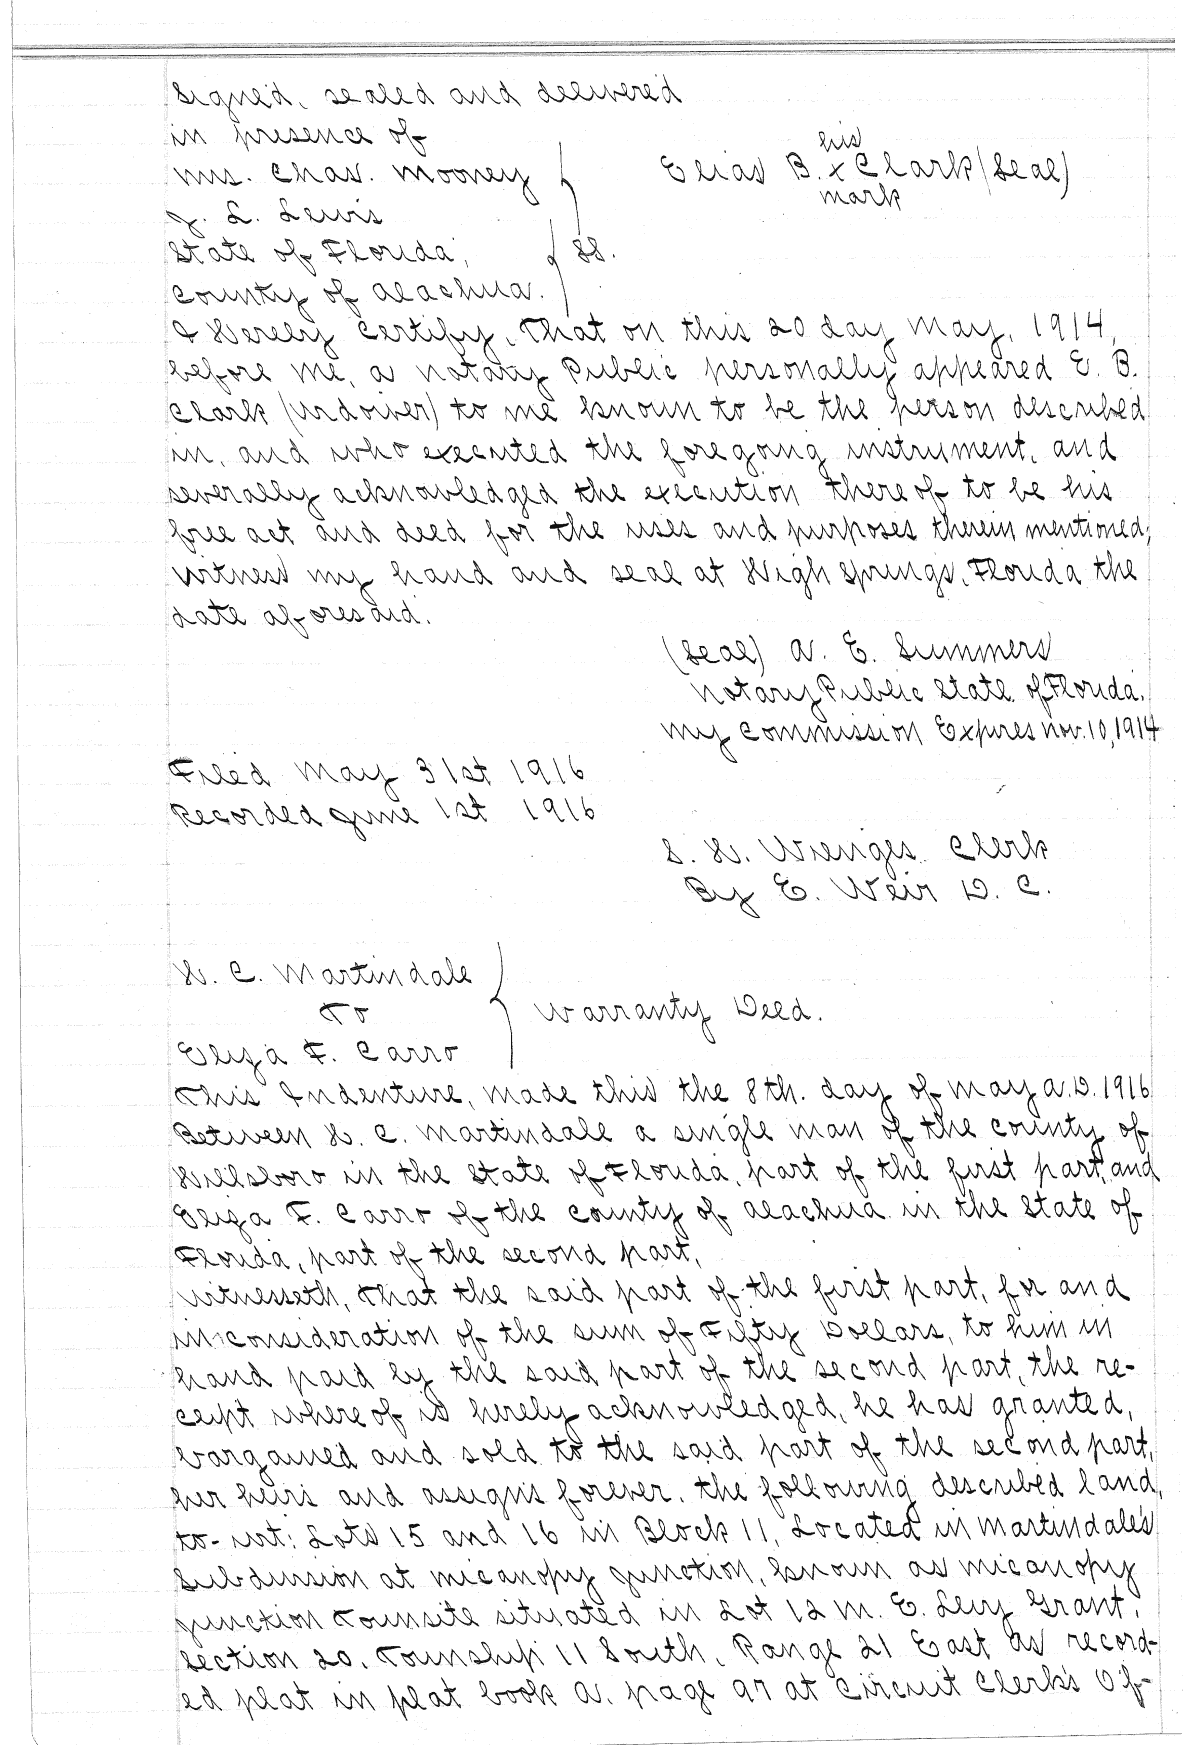 Signed, sealed and delivered
in presence of
his
Mrs. Chas. Mooney
Elias B. x Clark (Seal)
mark
J. L. Lewis
State of Florida, SS.
County of Alachua.
I Hereby Certify, That on this 20 day May, 1914,
before me, a Notary Public personally appeared E. B.
Clark (widower) to me known to be the person described
in, and who executed the foregoing instrument, and
severally acknowledged the execution thereof to be his
free act and deed for the uses and purposes therein mentioned;
Witness my hand and seal at High Springs, Florida the
date aforesaid.
(Seal) A. E. Summers
Notary Public State of Florida.
My Commission Expires Nov. 10, 1914
Filed May 31st 1916
Recorded June 1st 1916
S. H. Wienges Clerk
By E. Weir D. C.
H. C. Martindale
To
Warranty Deed.
Eliza F. Carro
This Indenture, made this the 8th. day of May A.D. 1916
Between H. C. Martindale a single man of the county of
Hillsboro in the State of Florida, part of the first part, and
Eliza F. Carro of the county of Alachua in the State of
Florida, part of the second part,
Witnesseth, That the said part of the first part, for and
in consideration of the sum of Fifty Dollars, to him in
hand paid by the said part of the second part, the re-
ceipt whereof is hereby acknowledged, he has granted,
bargained and sold to the said part of the second part,
her heirs and assigns forever, the following described land,
to-wit: Lots 15 and 16 in Block 11, Located in Martindale's
Subdivision at Micanopy Junction, known as Micanopy
Junction Townsite situated in Lot 12 M. E. Levy Grant,
Section 20, Township 11 South, Range 21 East as record-
ed plat in plat book A. page 97 at Circuit Clerk's Of-